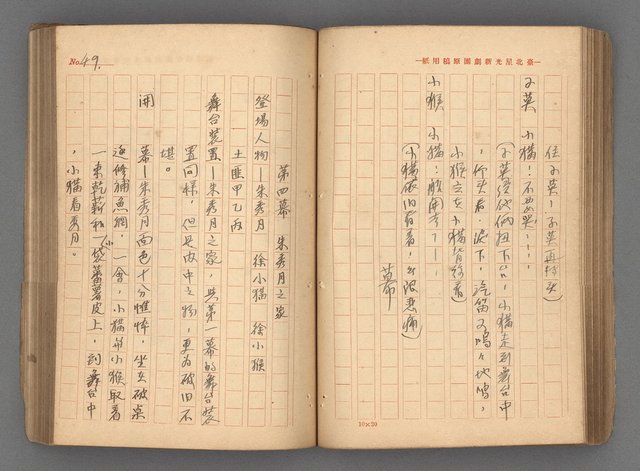 臺北星光新劇團原稿用紙
住子英，子英再轉头）
子英　小猫！不要哭！…
（子英從他倆扭下台，小猫走到舞台中
，仰头看，淚下，汽笛又鳴々地鳴，
小猴立在小猫背後看）
小猴　小猫！船開了！……
（小猫依旧看着，無限悲痛）
幕
10×20
No. 49.
第四幕　朱秀月之家
登場人物—朱秀月　徐小猫　徐小猴
土匪甲乙丙
舞台裝置—朱秀月之家，與第一幕的舞台裝
置同樣，但是內中之物，更为破旧不
堪。
開　幕—朱秀月面色十分憔悴，坐在破桌
邊修補魚網，一會，小猫與小猴取着
一束乾薪和一小袋蕃薯皮上，到舞台中
，小猫看秀月。